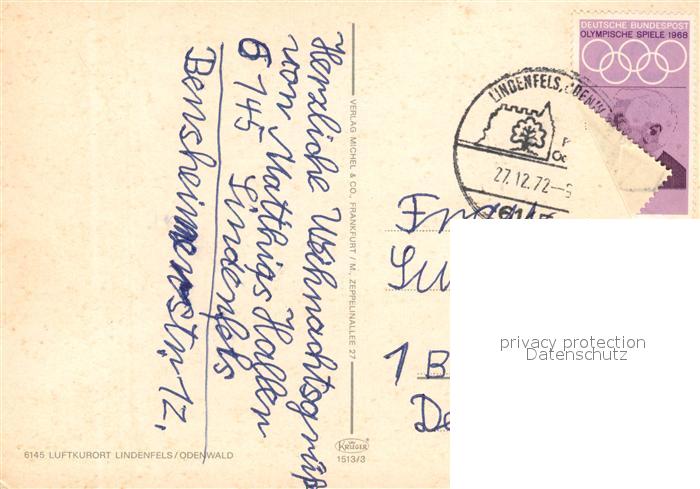 Herzliche Weihnachtsgrüß
von Matthias Hallen
6145 Lindenfels
Bensheimerstr. 12.
6145 LUFTKURORT LINDENFELS/ODENWALD
VERLAG MICHEL & CO., FRANKFURT / M., ZEPPELINALLEE 27
KRÜGER
1513/3
DEUTSCHE BUNDESPOST
OLYMPISCHE SPIELE 1968
LINDENFELS, ODENW
27.12.72-
1 B
De
privacy protection
Datenschutz